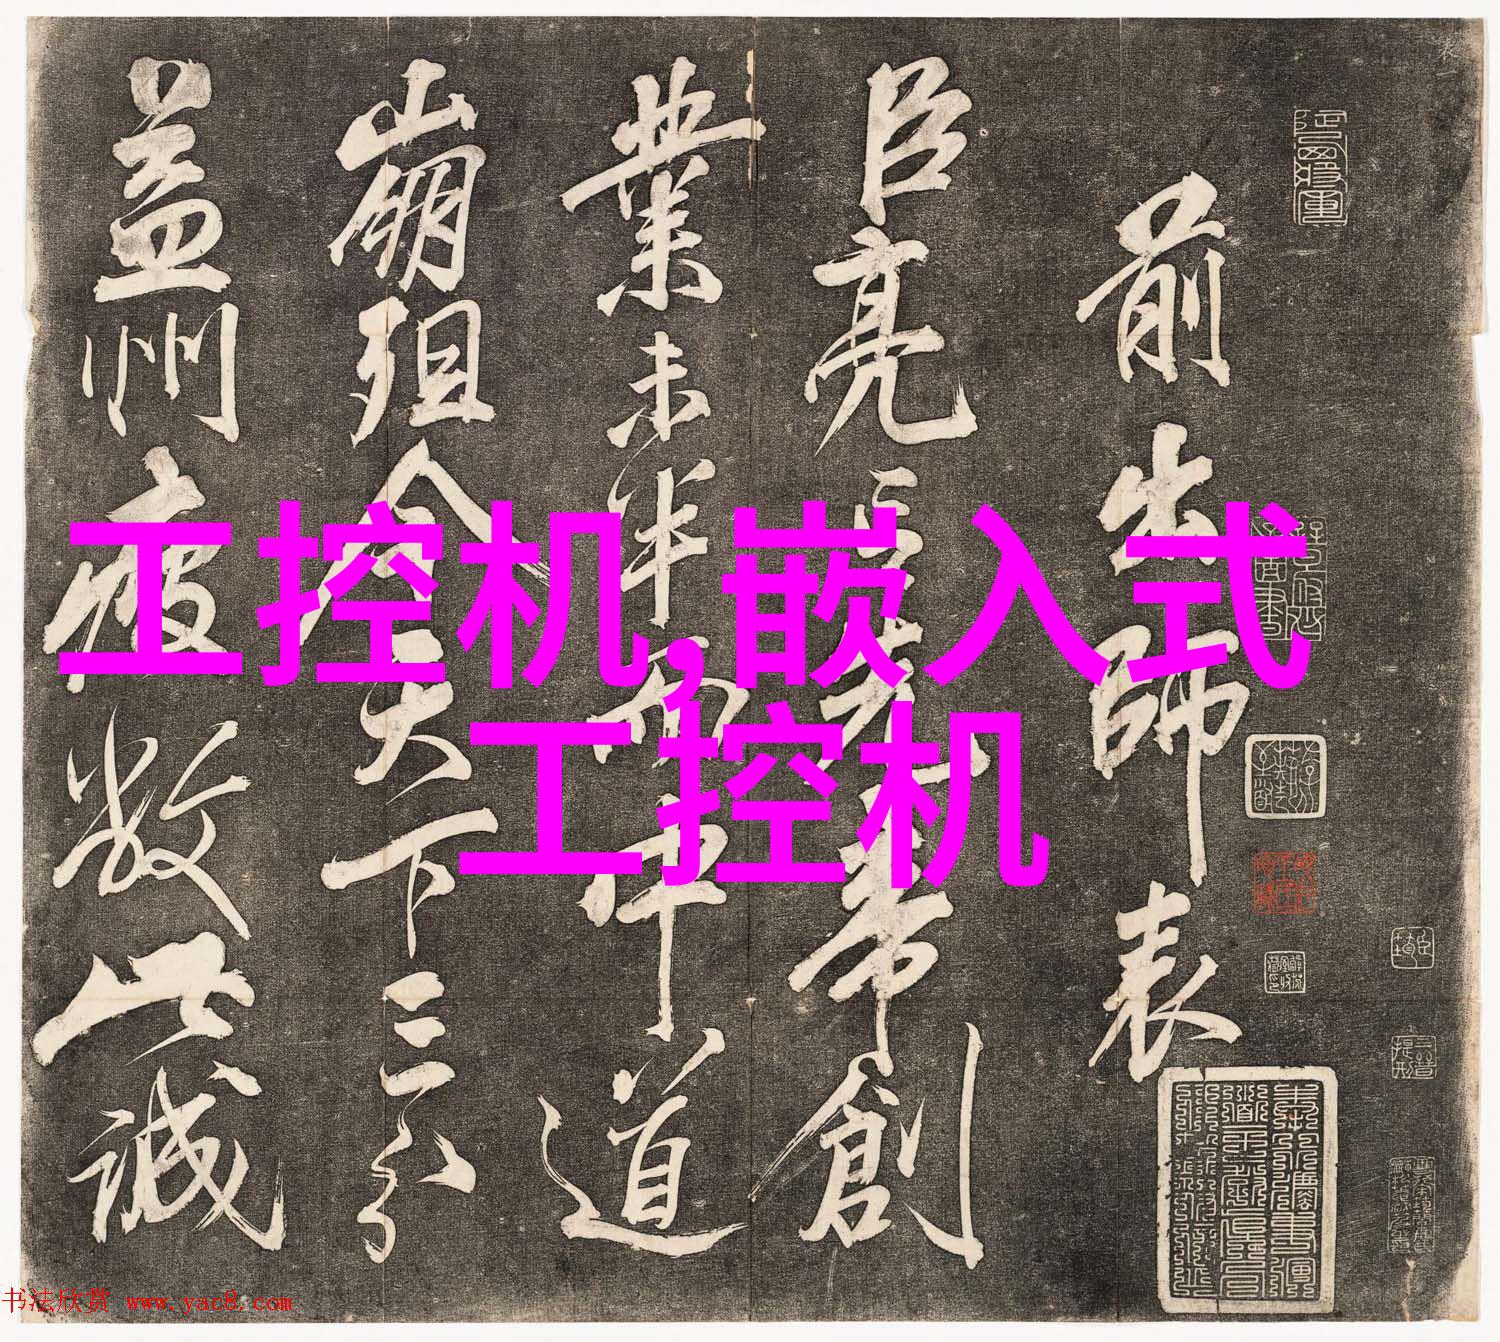 工控机,嵌入式
工控机
前出師表
臣亮言先帝創
業未半而中道
崩殂今天下三分
益州疲敝此誠
书法欣赏 www.yac8.com